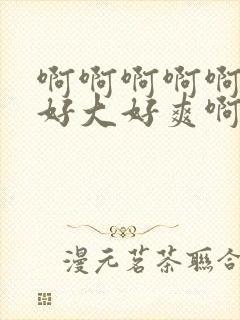 啊啊啊啊啊
好大好爽啊
漫元茗茶聯合